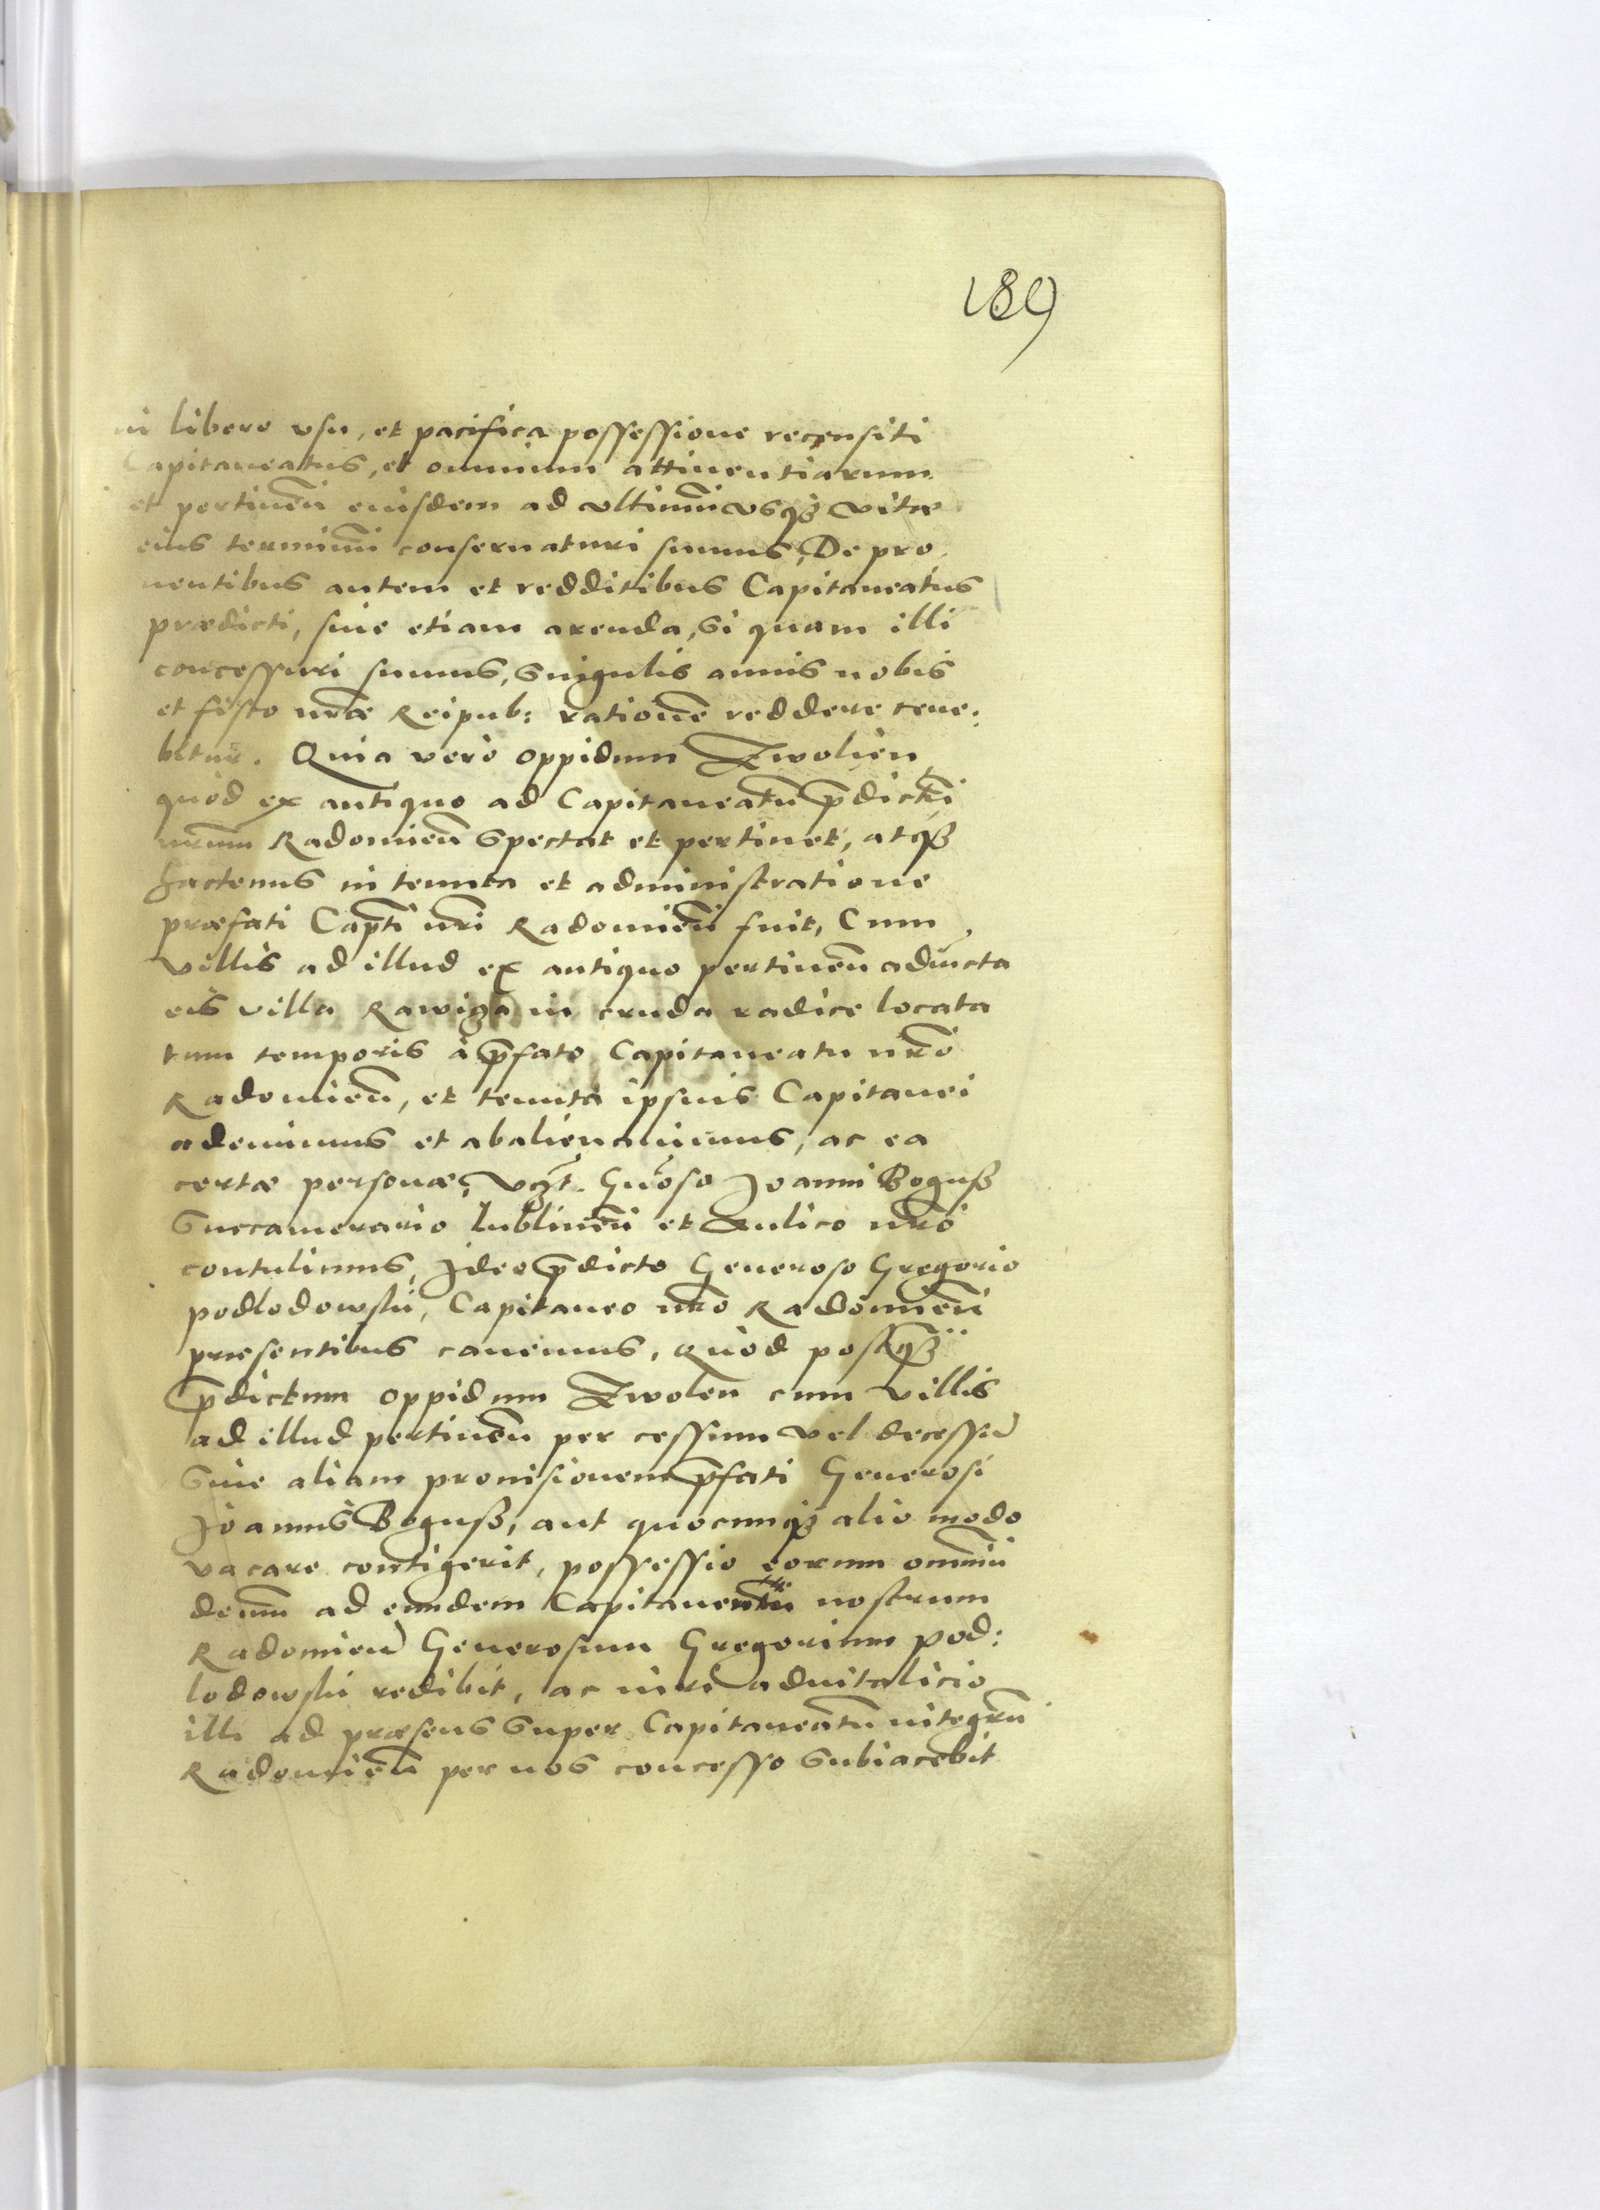 189
in libero usu, et pacifica possessione recensiti
Capitaneatus, et omnium attinentiarum
et pertinen̄ eiusdem ad ultimū usq₃ vitæ
eius terminū conservaturi sumus, De pro
ventibus autem et redditibus Capitaneatus
prædicti, sive etiam arenda, si quam illi
concessuri sumus, singulis annis nobis
et fisco nr̄æ Reipub: rationē reddere tene:
bitur. Quia vero oppidum Zwolien
quod ex antiquo ad Capitaneatū p̄dictū
nr̄um Radomien̄ spectat et pertinet, atq₃
hactenus in tenuta et administratione
præfati Capt̄i nr̄i Radomien̄ fuit, Cum
villis ad illud ex antiquo pertinen̄ adiūcta
eis villa Rawiga in cruda radice locata
tum temporis à p̄fato Capitaneatu nr̄o
Radomien̄, et tenuta ipsius Capitanei
ademimus et abalienavimus, ac ea
certæ personæ, vcȝt. Gn̄oso Joanni Boguß
Succamerario lublinen̄ et Aulico nr̄o
contulimus, Ideo p̄dicto Generoso Gregorio
podlodowski, Capitaneo nr̄o Radomien̄
præsentibus cavemus, quod postq₃
p̄dictum oppidum Zwolen cum villis
ad illud pertinen̄ per cessum vel decessū
sive aliam provisionem p̄fati Generosi
Joannis Boguß, aut quocumq₃ alio modo
vacare contigerit, possessio eorum omniū
demū ad eundem Capitaneatū nostrum
Radomien̄ Generosum Gregorium Pod:
lodowski redibit, ac iuri advitalicio
illi ad præsens super Capitaneatū integrū
Radomien̄ per nos concesso subiacebit